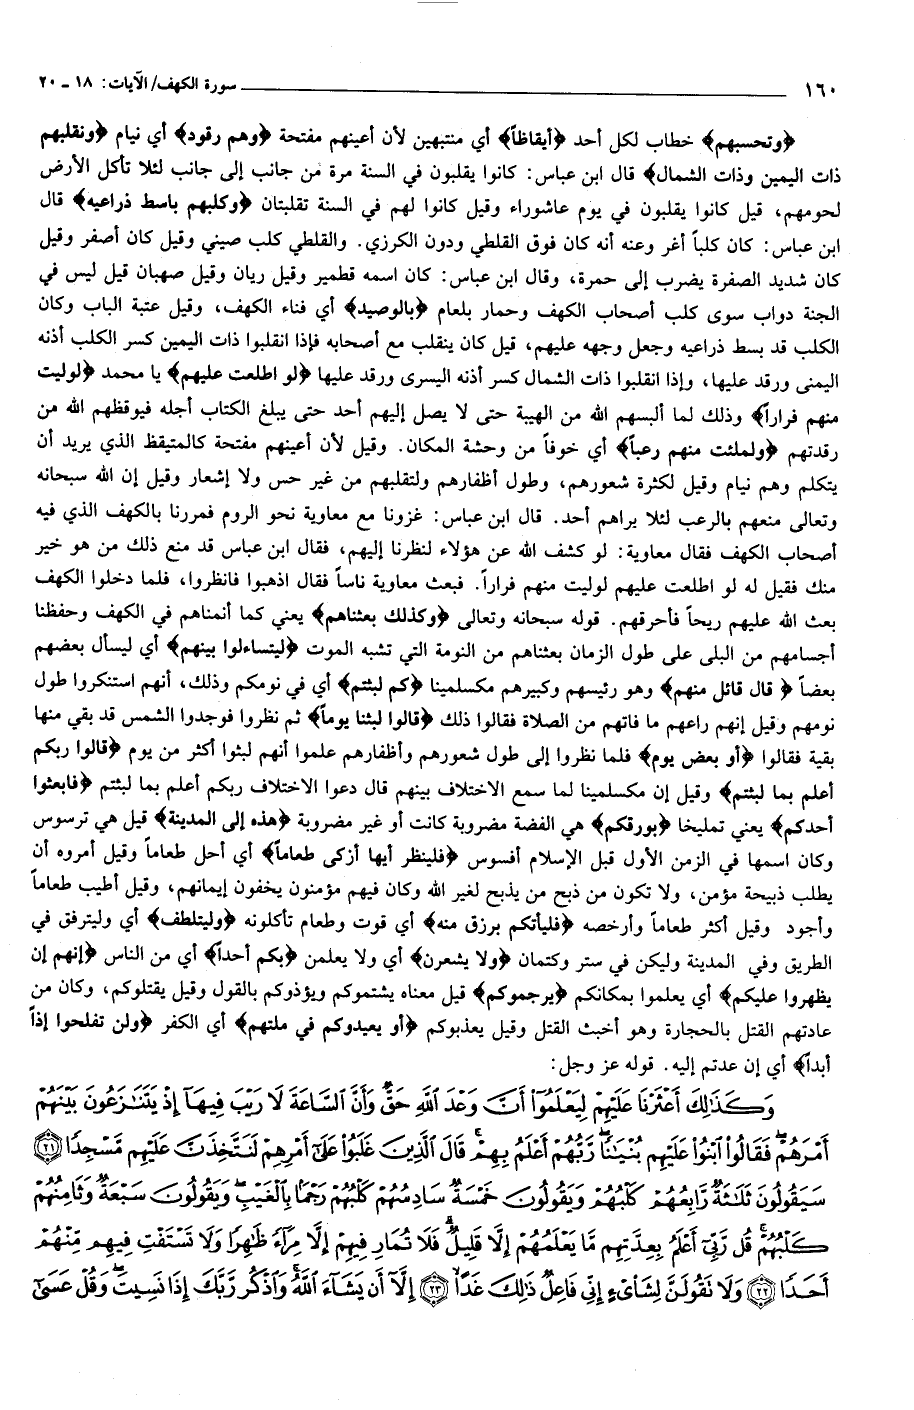 ١٦٠ سورة الكهف/ الآيات: ١٨ ـ ٢٠
﴿وتحسبهم﴾ خطاب لكل أحد ﴿أيقاظاً﴾ أي منتبهين لأن أعينهم مفتحة ﴿وهم رقود﴾ أي نيام ﴿ونقلبهم
ذات اليمين وذات الشمال﴾ قال ابن عباس: كانوا يقلبون في السنة مرة من جانب إلى جانب لئلا تأكل الأرض
لحومهم، قيل كانوا يقلبون في يوم عاشوراء وقيل كانوا لهم في السنة تقلبتان ﴿وكلبهم باسط ذراعيه﴾ قال
ابن عباس: كان كلباً أغر وعنه أنه كان فوق القلطي ودون الكرزي. والقلطي كلب صيني وقيل كان أصفر وقيل
كان شديد الصفرة يضرب إلى حمرة، وقال ابن عباس: كان اسمه قطمير وقيل ريان وقيل صهبان قيل ليس في
الجنة دواب سوى كلب أصحاب الكهف وحمار بلعام ﴿بالوصيد﴾ أي فناء الكهف، وقيل عتبة الباب وكان
الكلب قد بسط ذراعيه وجعل وجهه عليهم، قيل كان ينقلب مع أصحابه فإذا انقلبوا ذات اليمين كسر الكلب أذنه
اليمنى ورقد عليها، وإذا انقلبوا ذات الشمال كسر أذنه اليسرى ورقد عليها ﴿لو اطلعت عليهم﴾ يا محمد ﴿لوليت
منهم فراراً﴾ وذلك لما ألبسهم الله من الهيبة حتى لا يصل إليهم أحد حتى يبلغ الكتاب أجله فيوقظهم الله من
رقدتهم ﴿ولملئت منهم رعباً﴾ أي خوفاً من وحشة المكان. وقيل لأن أعينهم مفتحة كالمتيقظ الذي يريد أن
يتكلم وهم نيام وقيل لكثرة شعورهم، وطول أظفارهم ولتقلبهم من غير حس ولا إشعار وقيل إن الله سبحانه
وتعالى منعهم بالرعب لئلا يراهم أحد. قال ابن عباس: غزونا مع معاوية نحو الروم فمررنا بالكهف الذي فيه
أصحاب الكهف فقال معاوية: لو كشف الله عن هؤلاء لنظرنا إليهم، فقال ابن عباس قد منع ذلك من هو خير
منك فقيل له لو اطلعت عليهم لوليت منهم فراراً. فبعث معاوية ناساً فقال اذهبوا فانظروا، فلما دخلوا الكهف
بعث الله عليهم ريحاً فأحرقهم. قوله سبحانه وتعالى ﴿وكذلك بعثناهم﴾ يعني كما أنمناهم في الكهف وحفظنا
أجسامهم من البلى على طول الزمان بعثناهم من النومة التي تشبه الموت ﴿ليتساءلوا بينهم﴾ أي ليسأل بعضهم
بعضاً ﴿ قال قائل منهم﴾ وهو رئيسهم وكبيرهم مكسلمينا ﴿كم لبثتم﴾ أي في نومكم وذلك، أنهم استنكروا طول
نومهم وقيل إنهم راعهم ما فاتهم من الصلاة فقالوا ذلك ﴿قالوا لبثنا يوماً﴾ ثم نظروا فوجدوا الشمس قد بقي منها
بقية فقالوا ﴿أو بعض يوم﴾ فلما نظروا إلى طول شعورهم وأظفارهم علموا أنهم لبثوا أكثر من يوم ﴿قالوا ربكم
أعلم بما لبثتم﴾ وقيل إن مكسلمينا لما سمع الاختلاف بينهم قال دعوا الاختلاف ربكم أعلم بما لبثتم ﴿فابعثوا
أحدكم﴾ يعني تمليخا ﴿بورقكم﴾ هي الفضة مضروبة كانت أو غير مضروبة ﴿هذه إلى المدينة﴾ قيل هي ترسوس
وكان اسمها في الزمن الأول قبل الإسلام أفسوس ﴿فلينظر أيها أزكى طعاماً﴾ أي أحل طعاماً وقيل أمروه أن
يطلب ذبيحة مؤمن، ولا تكون من ذبح من يذبح لغير الله وكان فيهم مؤمنون يخفون إيمانهم، وقيل أطيب طعاماً
وأجود وقيل أكثر طعاماً وأرخصه ﴿فليأتكم برزق منه﴾ أي قوت وطعام تأكلونه ﴿وليتلطف﴾ أي وليترفق في
الطريق وفي المدينة وليكن في ستر وكتمان ﴿ولا يشعرن﴾ أي ولا يعلمن ﴿بكم أحداً﴾ أي من الناس ﴿إنهم إن
يظهروا عليكم﴾ أي يعلموا بمكانكم ﴿يرجموكم﴾ قيل معناه يشتموكم ويؤذوكم بالقول وقيل يقتلوكم، وكان من
عادتهم القتل بالحجارة وهو أخبث القتل وقيل يعذبوكم ﴿أو يعيدوكم في ملتهم﴾ أي الكفر ﴿ولن تفلحوا إذاً
أبداً﴾ أي إن عدتم إليه. قوله عز وجل:
وَكَذَٰلِكَ أَعْثَرْنَا عَلَيْهِمْ لِيَعْلَمُوٓا۟ أَنَّ وَعْدَ ٱللَّهِ حَقٌّ وَأَنَّ ٱلسَّاعَةَ لَا رَيْبَ فِيهَآ إِذْ يَتَنَٰزَعُونَ بَيْنَهُمْ
أَمْرَهُمْ ۖ فَقَالُوا۟ ٱبْنُوا۟ عَلَيْهِم بُنْيَٰنًا ۖ رَّبُّهُمْ أَعْلَمُ بِهِمْ ۚ قَالَ ٱلَّذِينَ غَلَبُوا۟ عَلَىٰٓ أَمْرِهِمْ لَنَتَّخِذَنَّ عَلَيْهِم مَّسْجِدًا ﴿٢١﴾
سَيَقُولُونَ ثَلَٰثَةٌ رَّابِعُهُمْ كَلْبُهُمْ وَيَقُولُونَ خَمْسَةٌ سَادِسُهُمْ كَلْبُهُمْ رَجْمًۢا بِٱلْغَيْبِ ۖ وَيَقُولُونَ سَبْعَةٌ وَثَامِنُهُمْ
كَلْبُهُمْ ۚ قُل رَّبِّىٓ أَعْلَمُ بِعِدَّتِهِم مَّا يَعْلَمُهُمْ إِلَّا قَلِيلٌ ۗ فَلَا تُمَارِ فِيهِمْ إِلَّا مِرَآءً ظَٰهِرًا وَلَا تَسْتَفْتِ فِيهِم مِّنْهُمْ
أَحَدًا ﴿٢٢﴾ وَلَا تَقُولَنَّ لِشَا۟ىْءٍ إِنِّى فَاعِلٌ ذَٰلِكَ غَدًا ﴿٢٣﴾ إِلَّآ أَن يَشَآءَ ٱللَّهُ ۚ وَٱذْكُر رَّبَّكَ إِذَا نَسِيتَ وَقُلْ عَسَىٰٓ